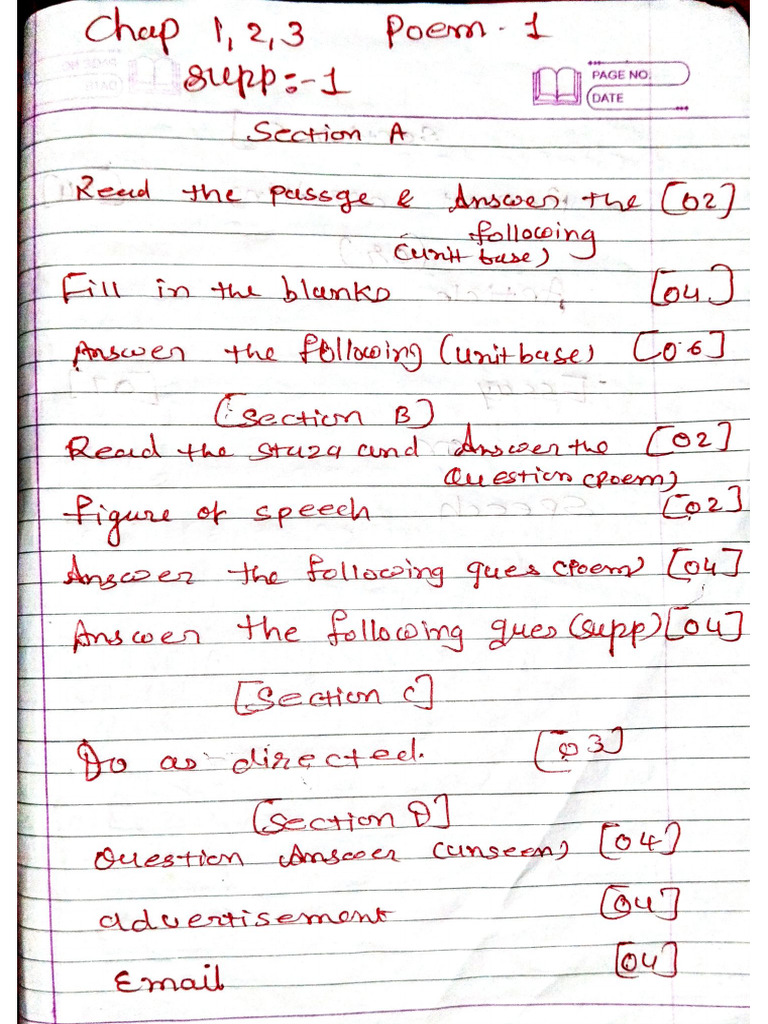 Chap 1, 2, 3 Poem - 1
Supp:-1
PAGE NO.
DATE
Section A
Read the passge & Answer the [02]
following
(unit base)
Fill in the blanks [04]
Answer the following (unit base) [06]
[Section B]
Read the staza and Answer the [02]
Question (poem)
Figure of speech [02]
Answer the following ques (Poem) [04]
Answer the following ques (supp) [04]
[Section C]
Do as directed. [03]
[Section D]
Question Answer (unseen) [04]
advertisement [04]
Email [04]